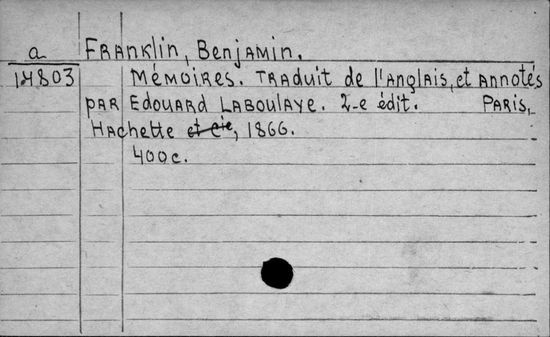 a Franklin, Benjamin.
17803 Mémoires. Traduit de l'anglais, et annotés
par Edouard Laboulaye. 2-e édit. Paris,
Hachette et Cie, 1866.
400c.